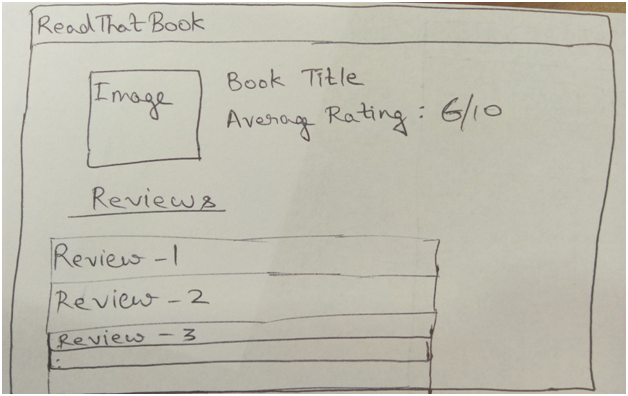 ReadThatBook
Image
Book Title
Averag Rating : 6/10
Reviews
Review - 1
Review - 2
Review - 3
: